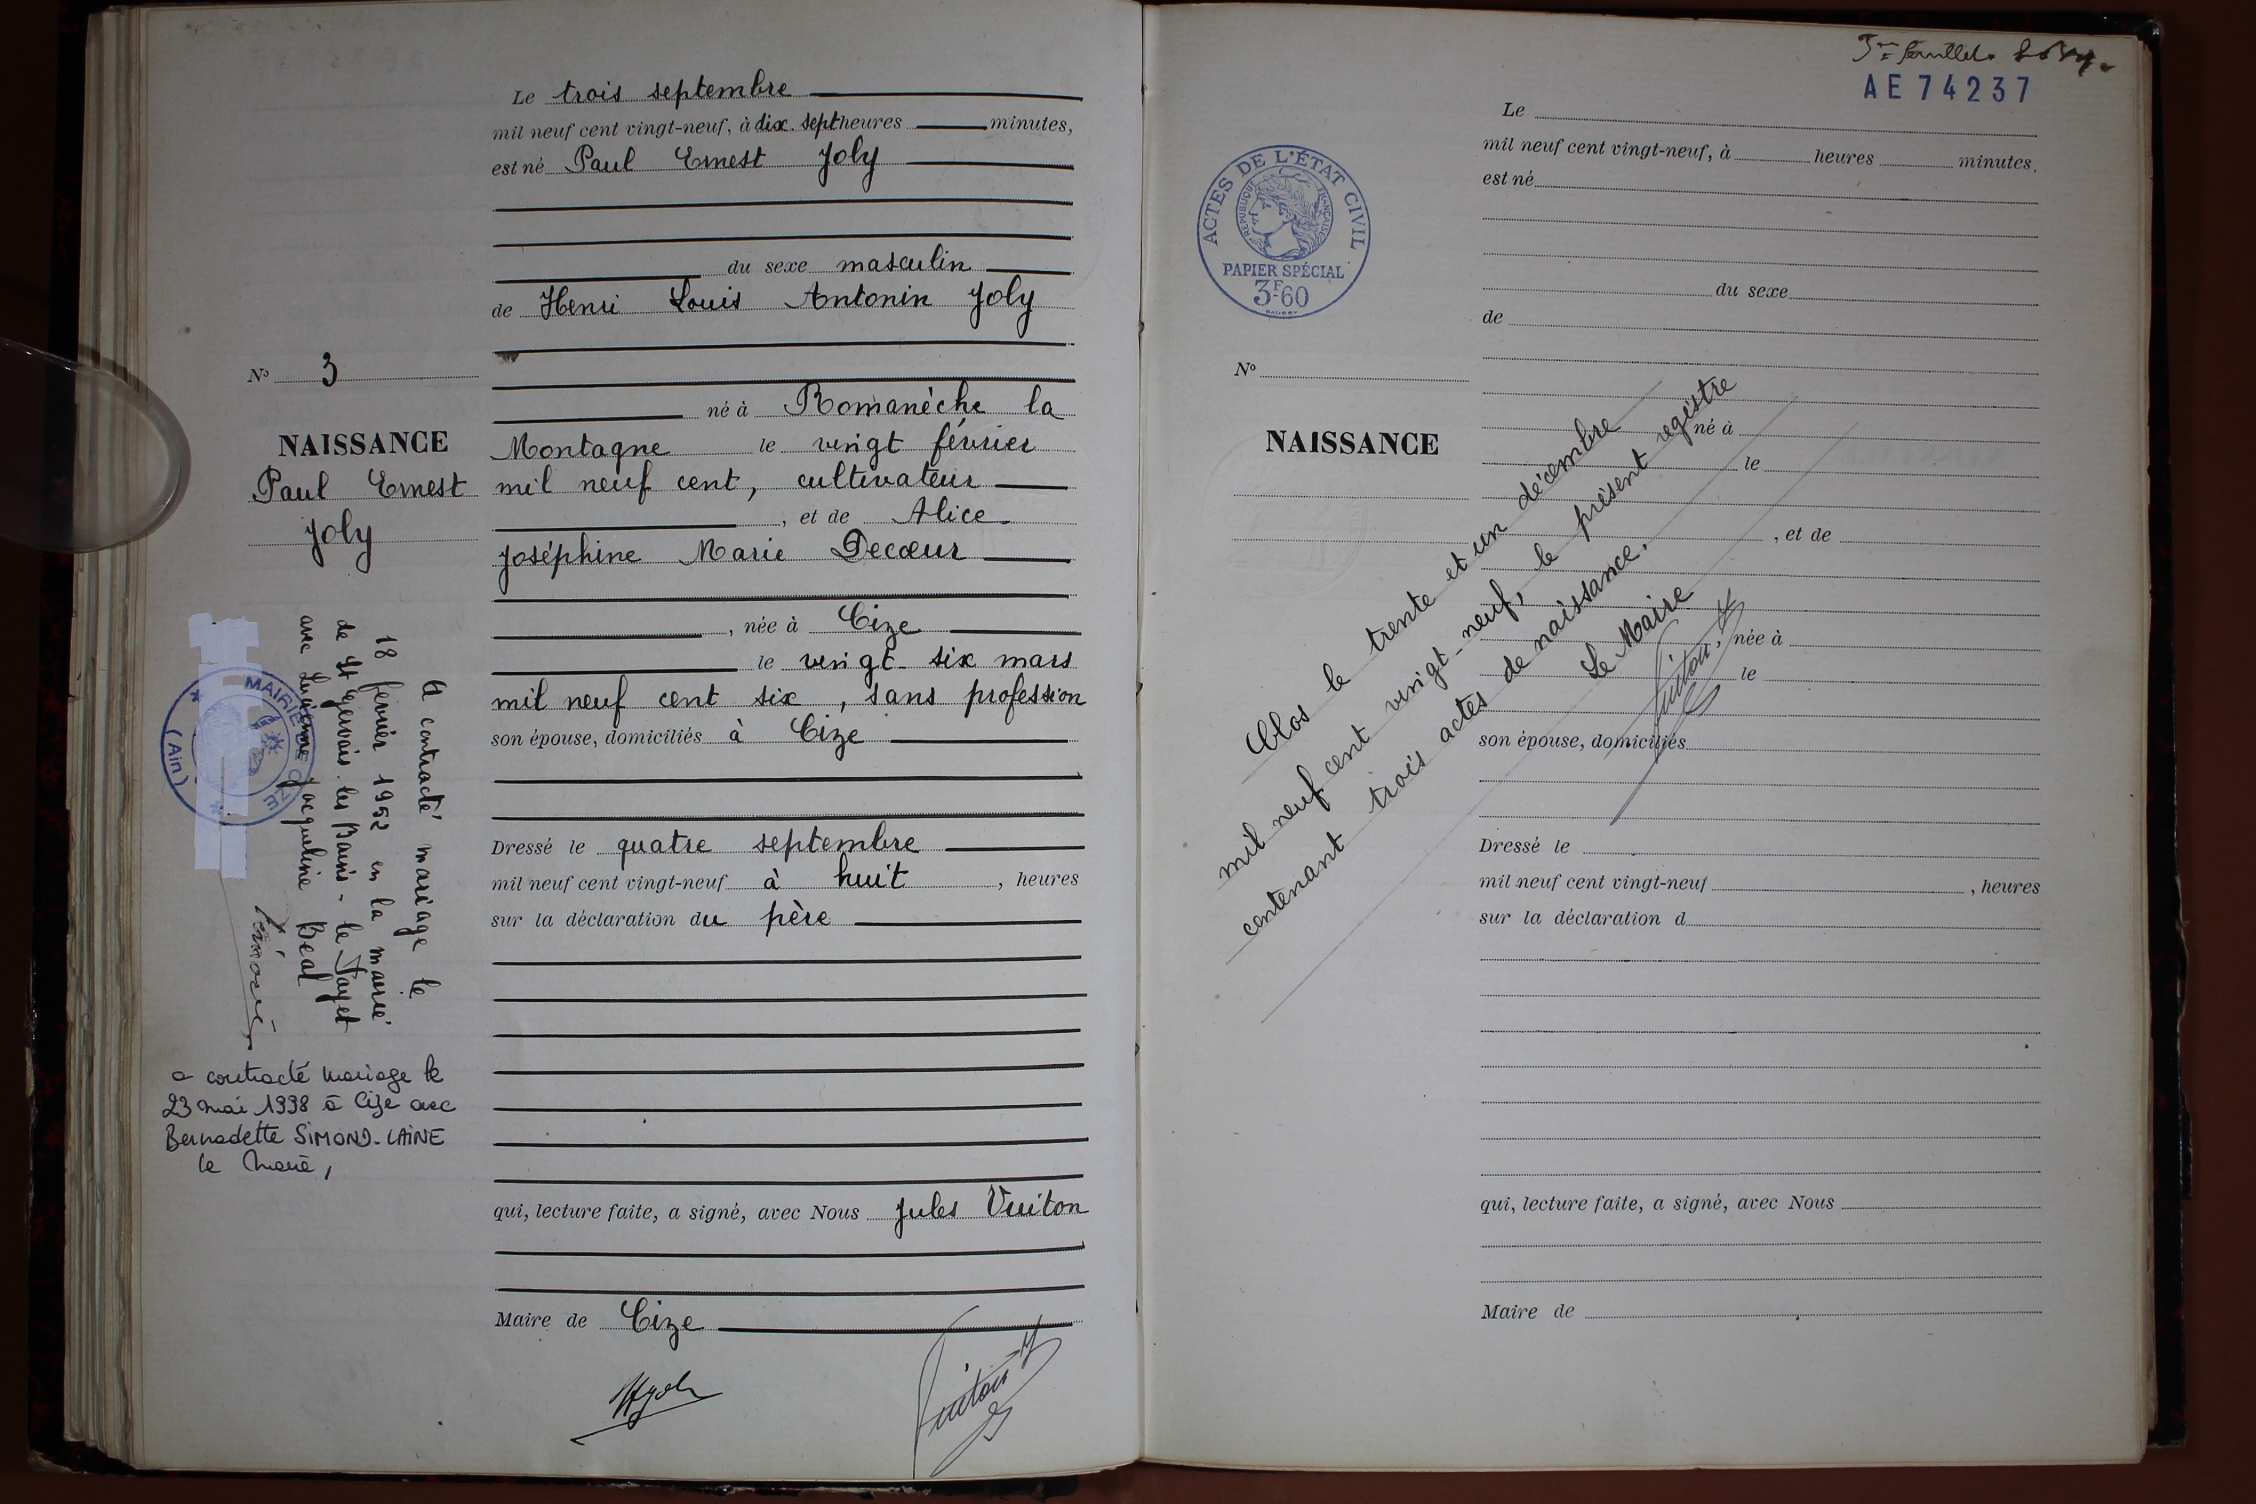 Le trois septembre
mil neuf cent vingt-neuf, à dix-sept heures minutes,
est né Paul Ernest Joly
du sexe masculin
de Henri Louis Antonin Joly
né à Romanèche la
Montagne le vingt février
mil neuf cent, cultivateur
, et de Alice
Joséphine Marie Decœur
, née à Cize
le vingt-six mars
mil neuf cent six, sans profession
son épouse, domiciliés à Cize
Dressé le quatre septembre
mil neuf cent vingt-neuf à huit , heures
sur la déclaration du père
qui, lecture faite, a signé, avec Nous Jules Vuiton
Maire de Cize
Nº 3
NAISSANCE
Paul Ernest
Joly
A contracté mariage le
18 février 1952 en la mairie
de St Gervais les Bains - le Fayet
avec Lucienne Jacqueline Beal
MAIRIE DE CIZE
(Ain)
a contracté mariage le
23 mai 1998 à Cize avec
Bernadette SIMOND-LAINE
le Maire,
AE 74237
ACTES DE L'ÉTAT CIVIL
RÉPUBLIQUE FRANÇAISE
PAPIER SPÉCIAL
3F60
Nº
NAISSANCE
Le
mil neuf cent vingt-neuf, à heures minutes.
est né
du sexe
de
né à
le
, et de
, née à
le
son épouse, domiciliés
Dressé le
mil neuf cent vingt-neuf , heures
sur la déclaration d
qui, lecture faite, a signé, avec Nous
Maire de
Clos le trente et un décembre
mil neuf cent vingt-neuf, le présent registre
contenant trois actes de naissance.
Le Maire
Vuiton